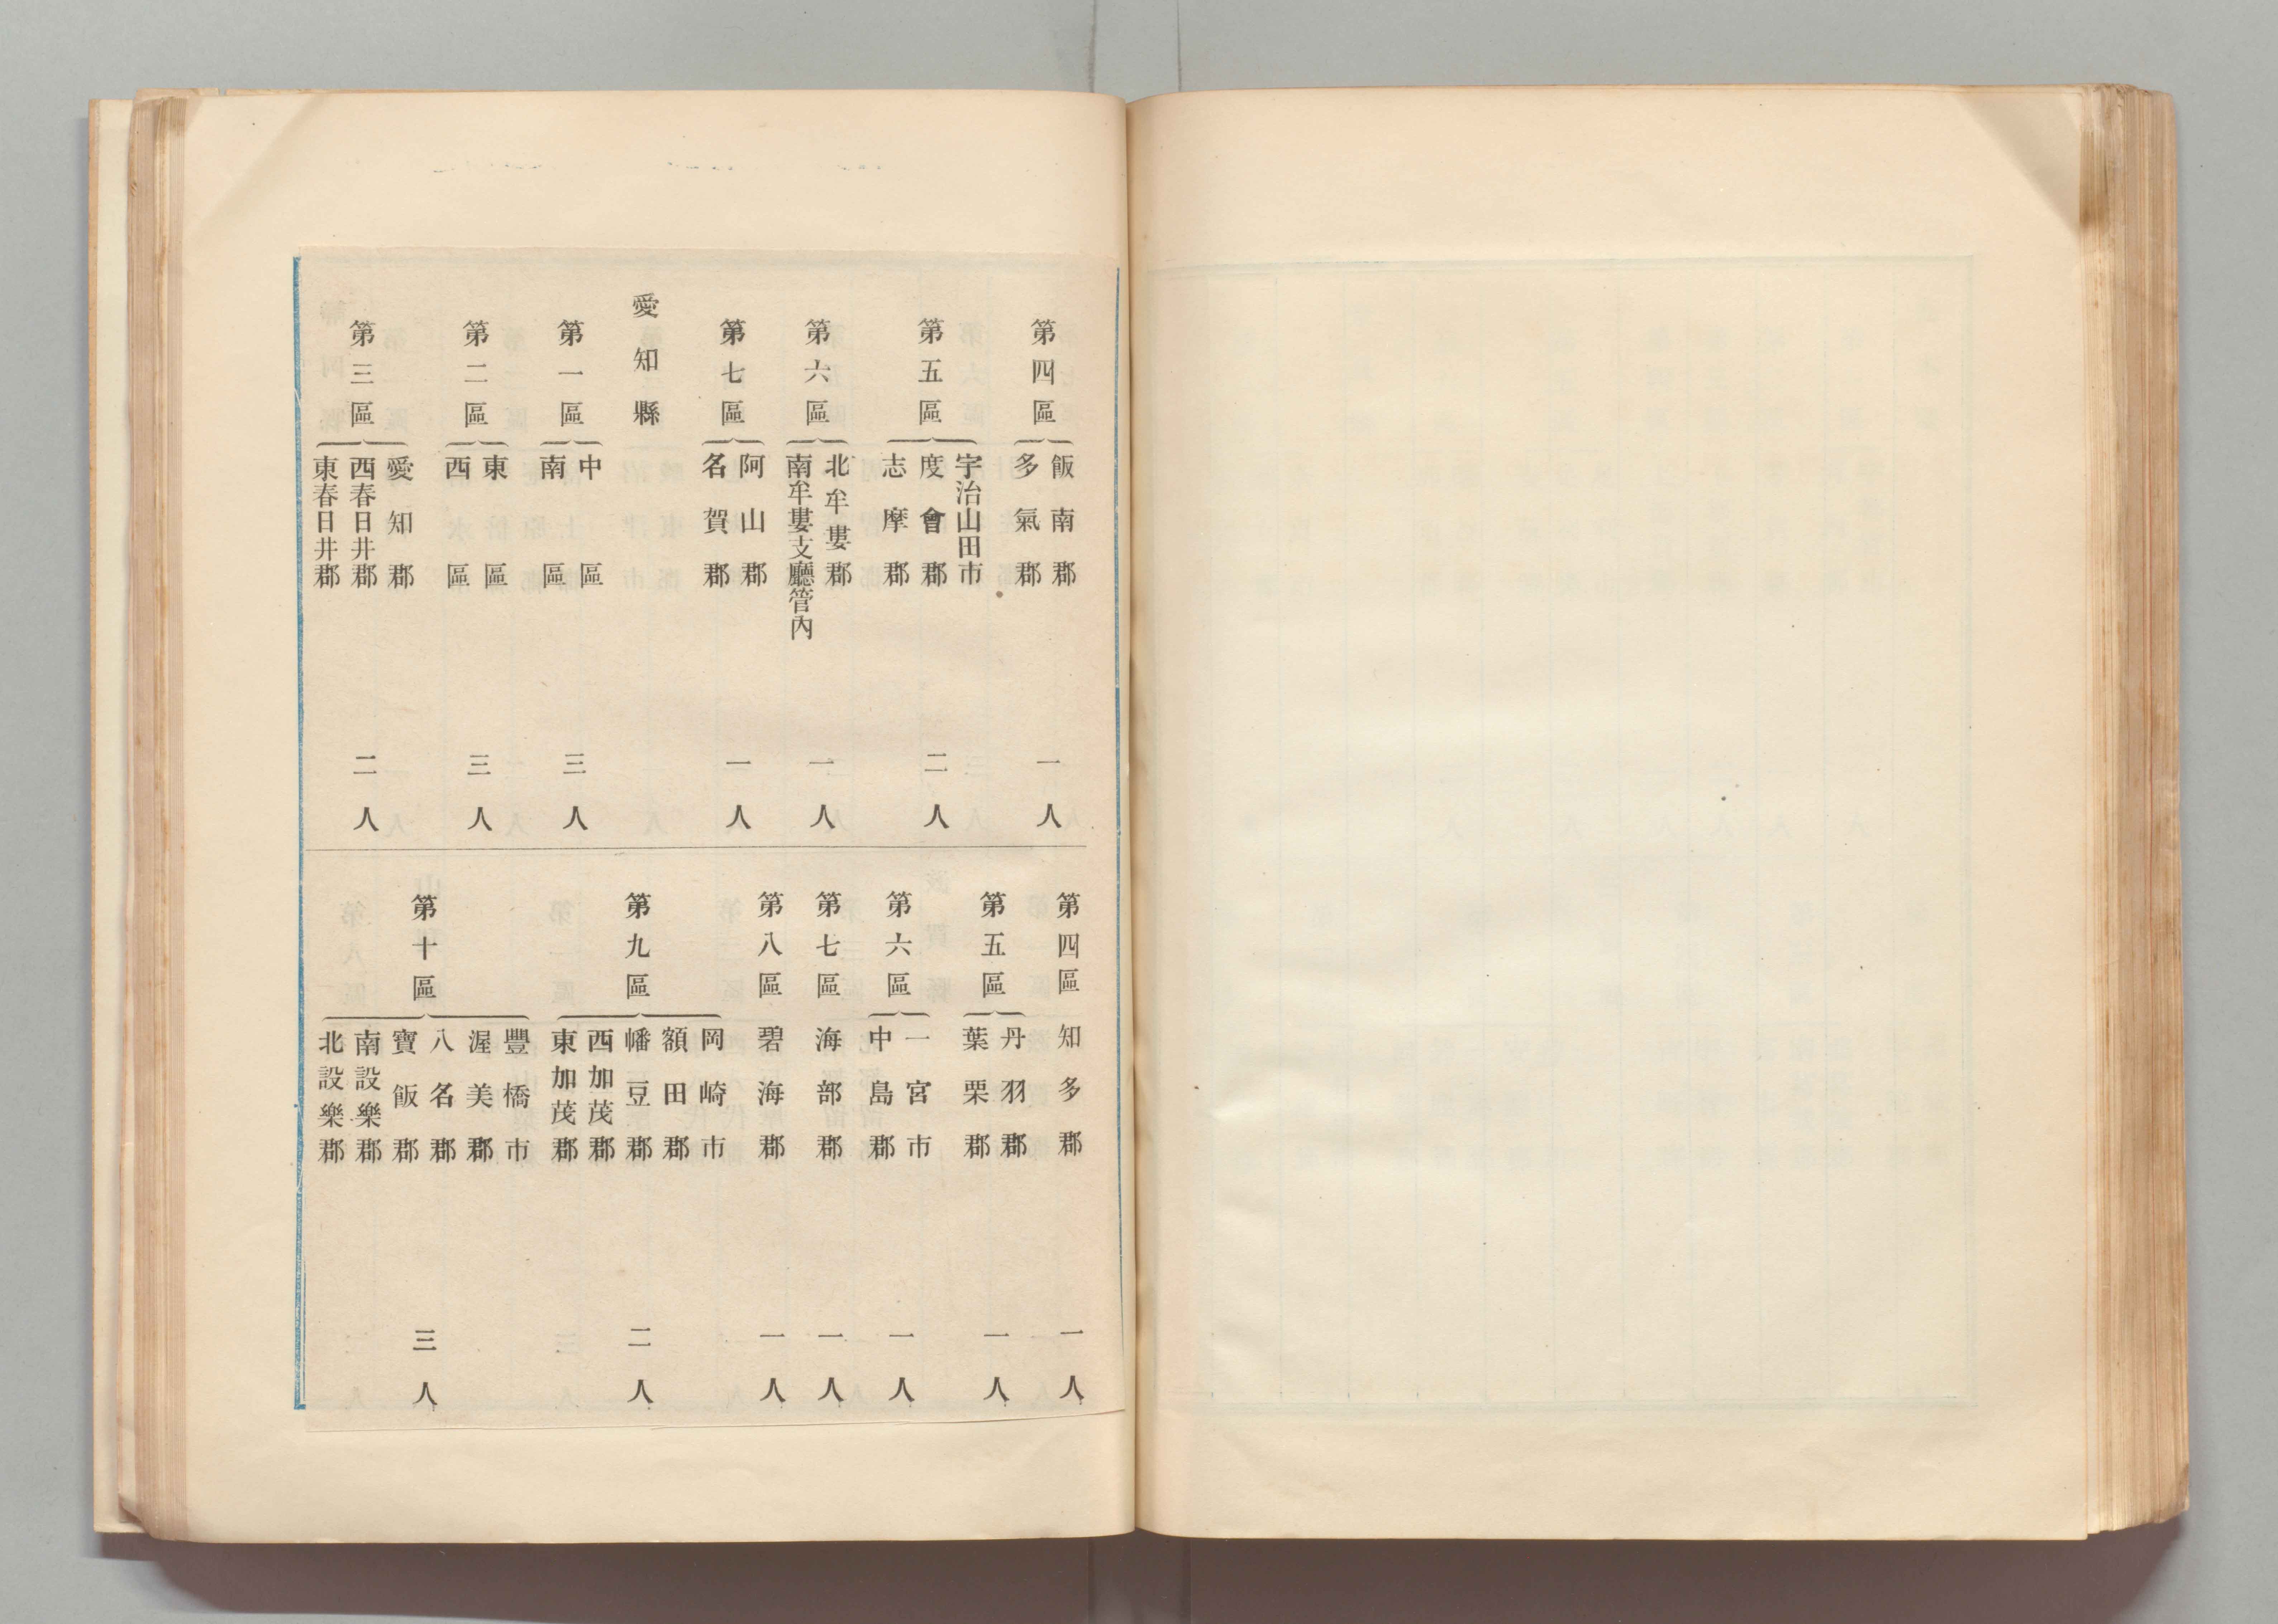 第四區
飯南郡
多氣郡
一人
第五區
宇治山田市
度會郡
志摩郡
二人
第六區
北牟婁郡
南牟婁支廳管內
一人
第七區
阿山郡
名賀郡
一人
愛知縣
第一區
中區
南區
三人
第二區
東區
西區
三人
第三區
愛知郡
西春日井郡
東春日井郡
二人
第四區
知多郡
一人
第五區
丹羽郡
葉栗郡
一人
第六區
一宮市
中島郡
一人
第七區
海部郡
一人
第八區
碧海郡
一人
第九區
岡崎市
額田郡
幡豆郡
西加茂郡
東加茂郡
二人
第十區
豐橋市
渥美郡
八名郡
寶飯郡
南設樂郡
北設樂郡
三人